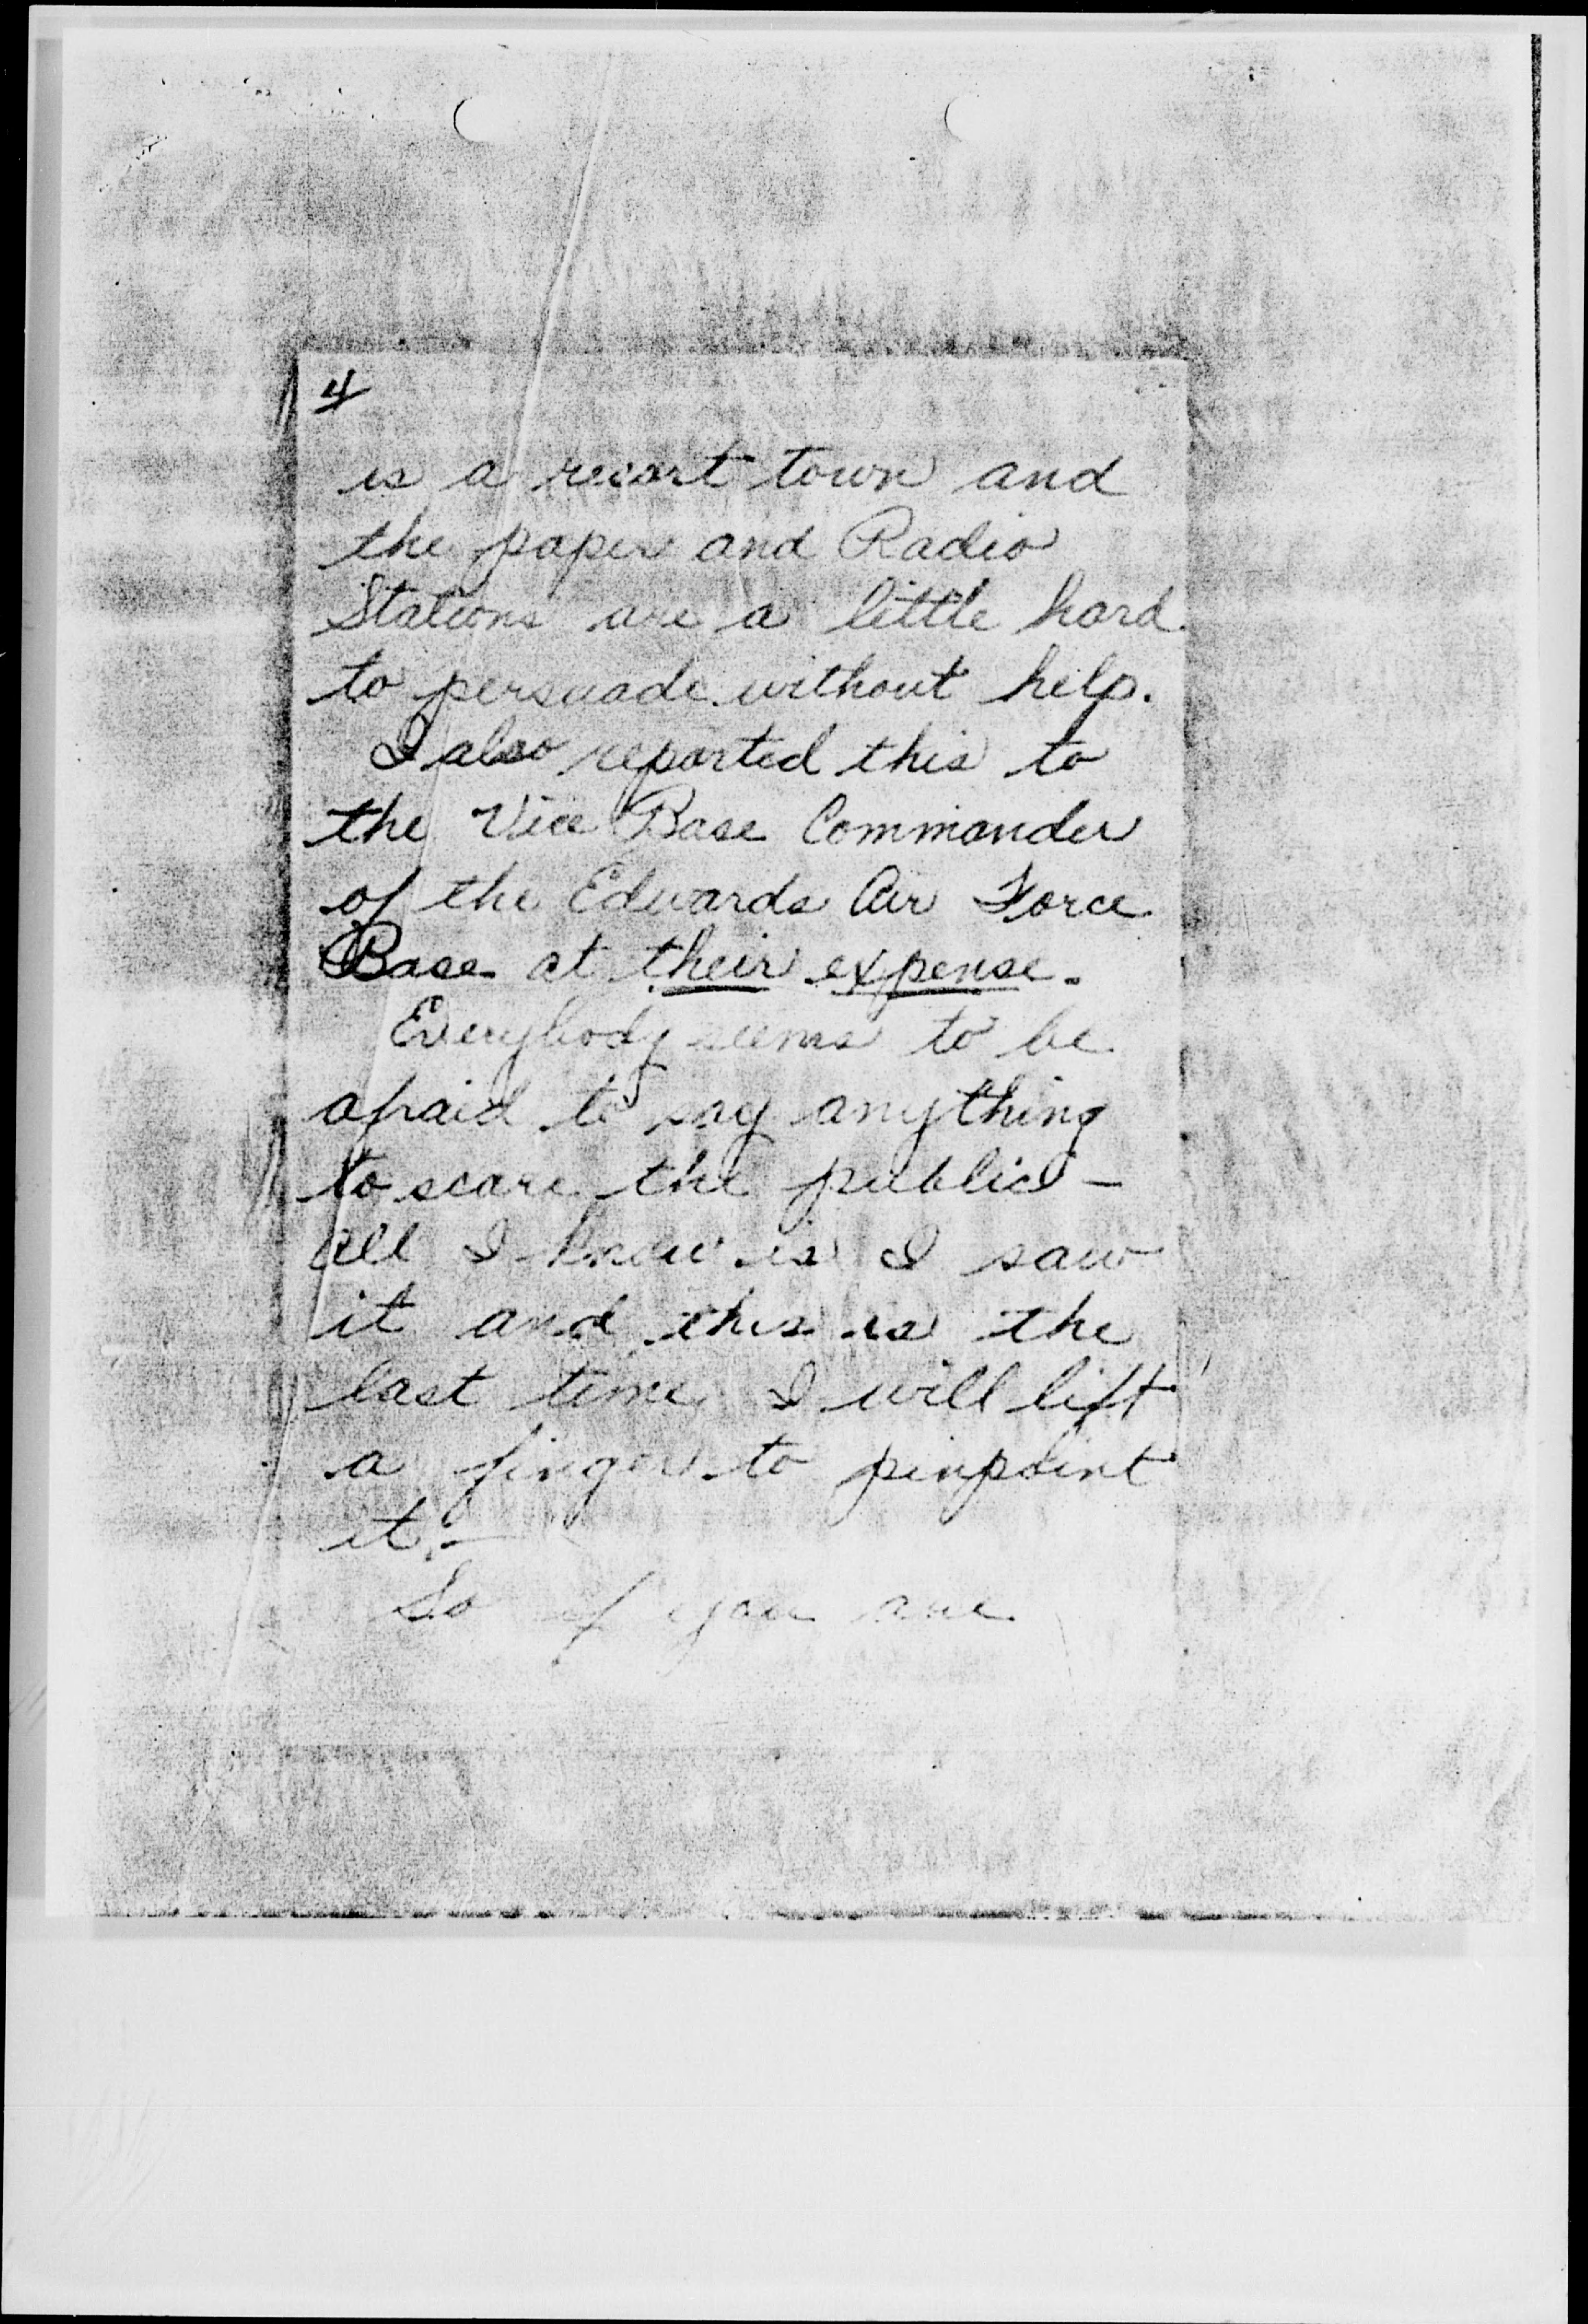 4
is a resort town and
the paper and Radio
Stations are a little hard
to persuade without help.
I also reported this to
the Vice Base Commander
of the Edwards Air Force
Base at their expense.
Everybody seems to be
afraid to say anything
to scare the public -
all I know is I saw
it and this is the
last time I will lift
a finger to pinpoint
it. -
So if you are